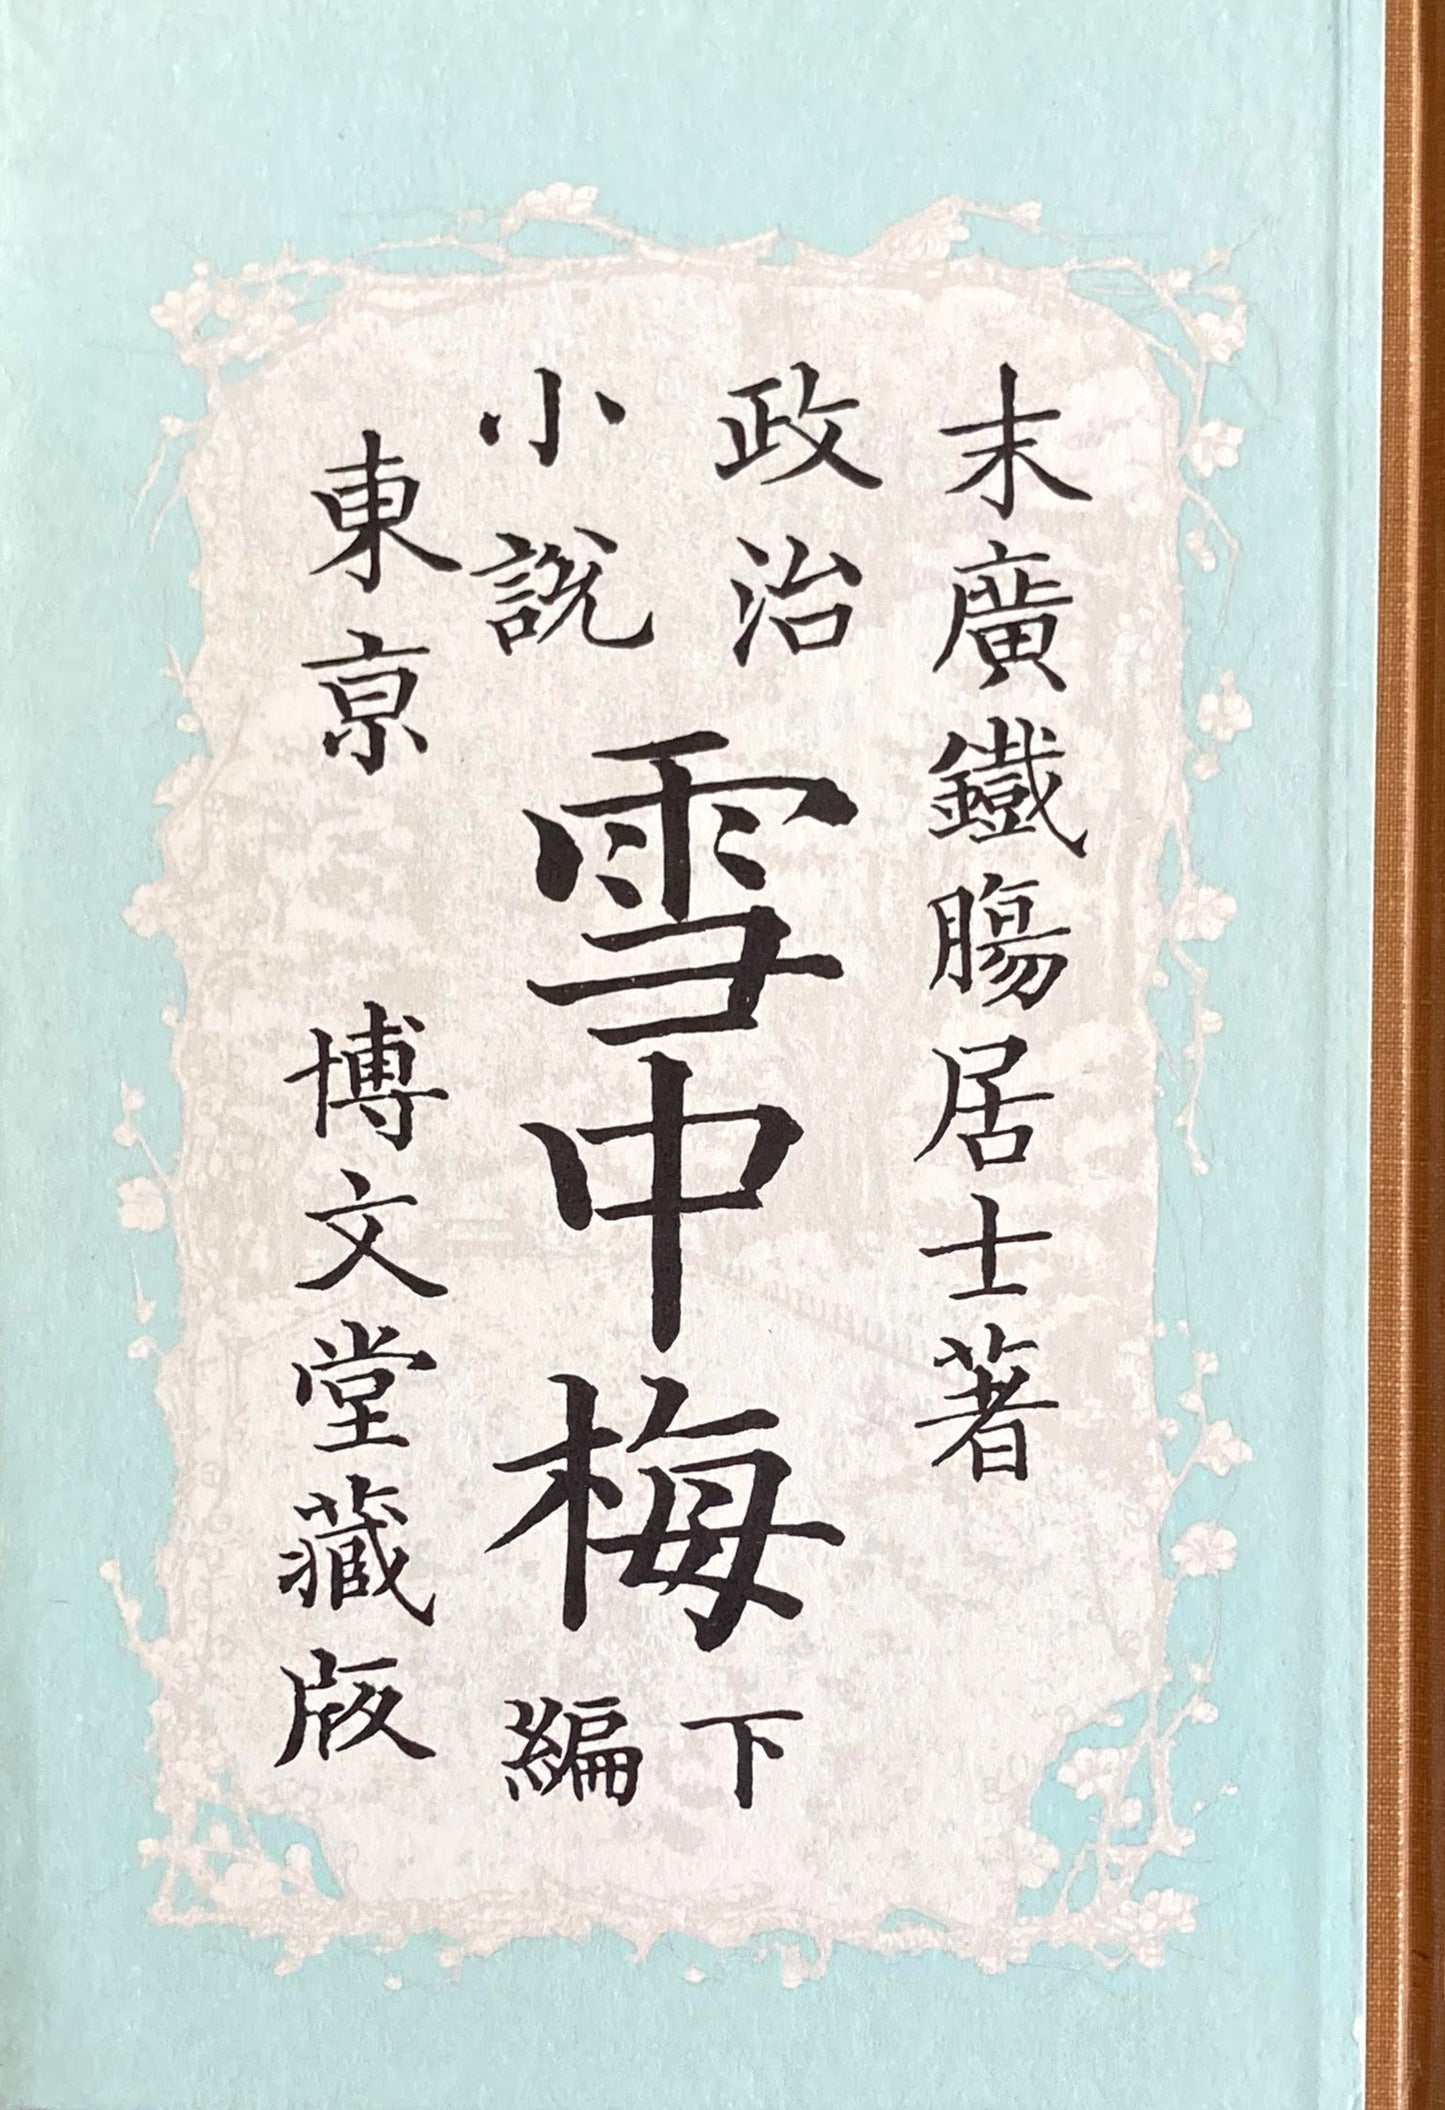 末廣鐵膓居士著
政治
小說
雪中梅
下
編
東亰 博文堂藏版